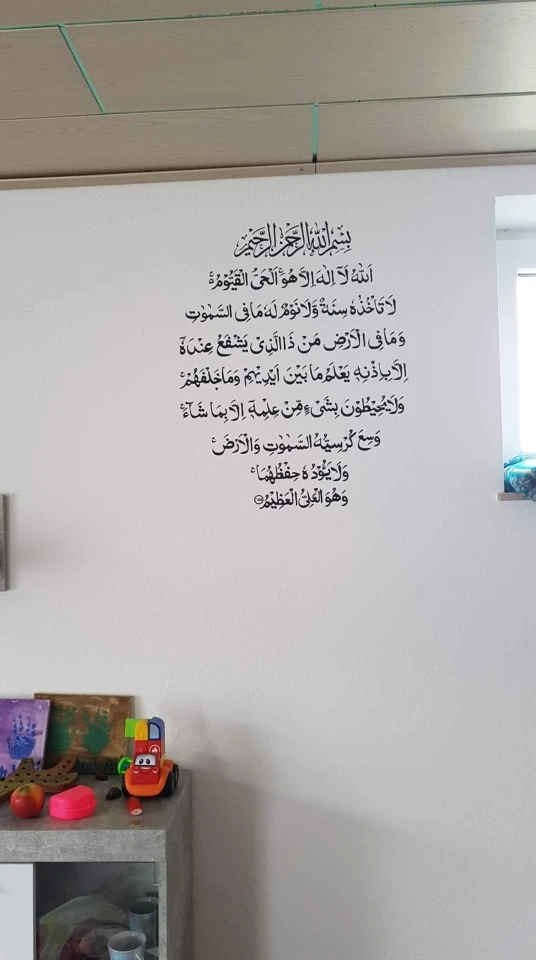 بِسْمِ اللهِ الرَّحْمٰنِ الرَّحِيْمِ
اَللهُ لَآ اِلٰهَ اِلَّا هُوَ ۚ اَلْحَيُّ الْقَيُّوْمُ ۚ
لَا تَأْخُذُهٗ سِنَةٌ وَّلَا نَوْمٌ لَهٗ مَا فِى السَّمٰوٰتِ
وَمَا فِى الْاَرْضِ مَنْ ذَا الَّذِىْ يَشْفَعُ عِنْدَهٗٓ
اِلَّا بِاِذْنِهٖ يَعْلَمُ مَا بَيْنَ اَيْدِيْهِمْ وَمَا خَلْفَهُمْ ۚ
وَلَا يُحِيْطُوْنَ بِشَىْءٍ مِّنْ عِلْمِهٖٓ اِلَّا بِمَا شَآءَ ۚ
وَسِعَ كُرْسِيُّهُ السَّمٰوٰتِ وَالْاَرْضَ ۚ
وَلَا يَئُوْدُهٗ حِفْظُهُمَا ۚ
وَهُوَ الْعَلِىُّ الْعَظِيْمُ